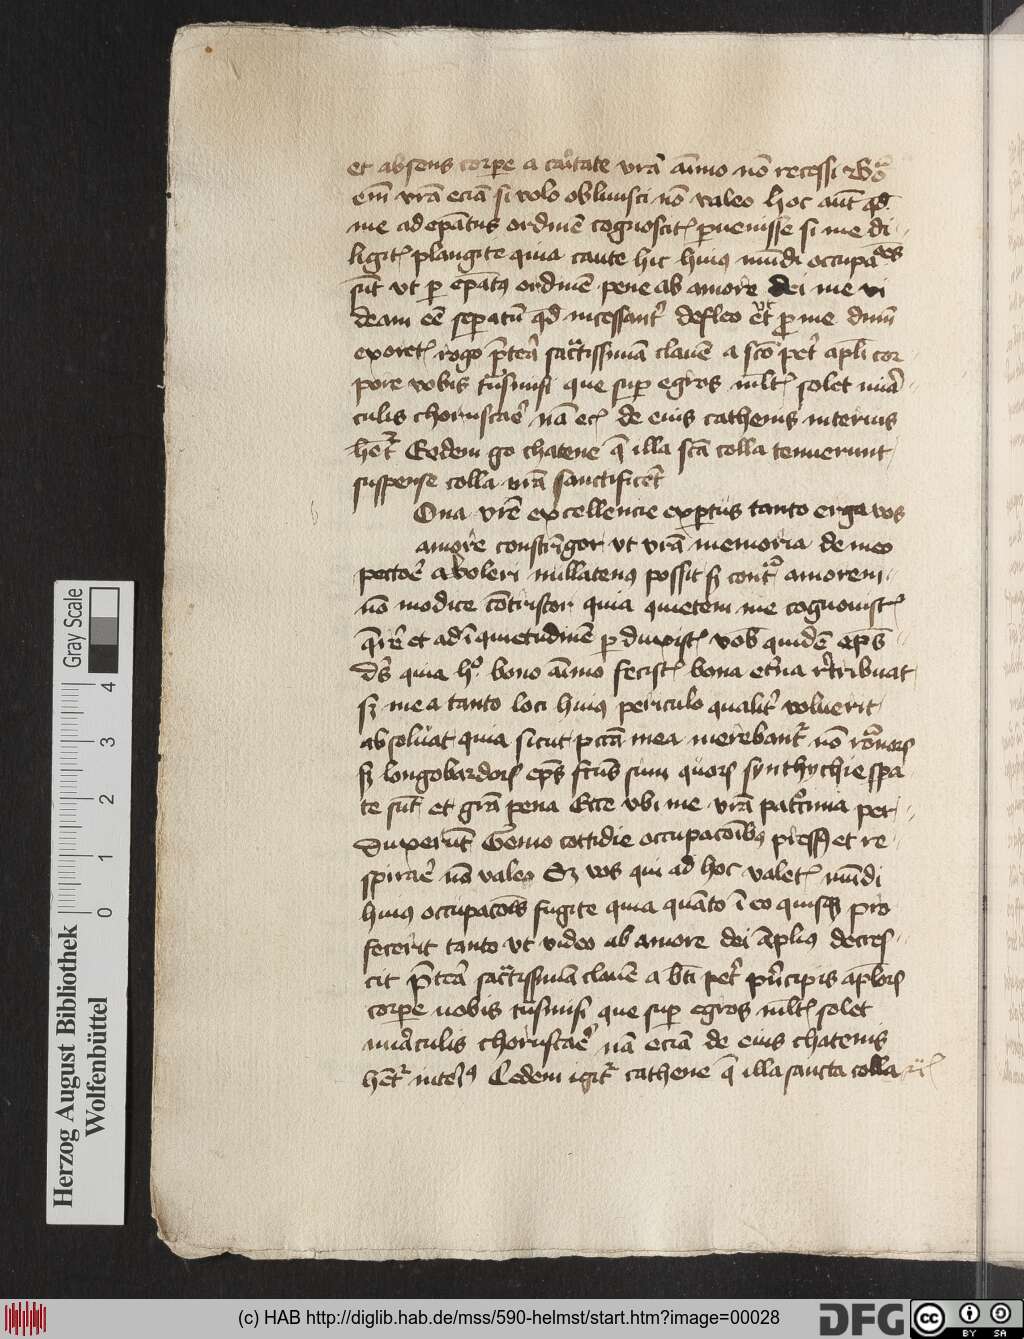 et absens corpe a caritate vrā aīmo nō recessi Vrō
em̄ vrā eciā si volo obliuisci nō valeo hoc aūt qd
me ad epātus ordinē cognoscit͛ puenisse si me di
ligit͛ plangite quia tante hic huiꝰ mūdi occupacōes
sūt vt p epatꝰ ordinē pene ab amore dei me vi
deam eē sepatū qd incessant͛ defleo et vt p me dnm̄
exoret͛ rogo p̄tea sacratissimā clauē a sco pet͛ apli cor
pore vobis tūsmisi que sup egros mlt͛ solet mira
culis choruscar͛ nā ec͛ de eius cathenis interius
het͛ Eedem go chatene q̄ illa scā colla tenuerunt
suspense colla vrā sanctificēt
Ona vrē excellencie exptus tanto erga vos
amore constringor vt vrā memoria de meo
pectore aboleri nullatenꝰ possit sꝫ cont͛ amorem
nō modice cōtristor quia quietem me cognouist͛
q̄rē et ad īquietudinē pduxist͛ vob quidē ep̄s
ds quia h͛ bono aīmo fecist͛ bona et͛na r͛tribuat
sꝫ me a tanto loci huiꝰ periculo qualit͛ voluerit
absoluat quia sicut pccā mea merebant͛ nō romanoꝝ
sꝫ longobardoꝝ ep̄s fcūs sum quoꝝ synthychie spa
te sūt et grā pena Ecce vbi me vrā patrocīnia per
duxerūt Gemo cottidie occupacōibꝰ pressꝰ et re
spirare nō valeo Sꝫ vos qui ad hoc valet͛ mūdi
huiꝰ occupacōes fugite quia quāto ī eo quisqꝫ pro
fecerit tanto vt video ab amore dei āpliꝰ decres
cit p̄tea sacratissimā clauē a bti pet͛ pncipis aploꝝ
corpe uobis tūsmisi que sup egros mlt͛ solet
miraculis choruscare nā eciā de eius chatenis
het͛ interiꝰ Eedem igit͛ cathene q̄ illa sancta colla
Herzog August Bibliothek
Wolfenbüttel
0 1 2 3 4
Gray Scale
(c) HAB http://diglib.hab.de/mss/590-helmst/start.htm?image=00028
DFG
cc BY SA